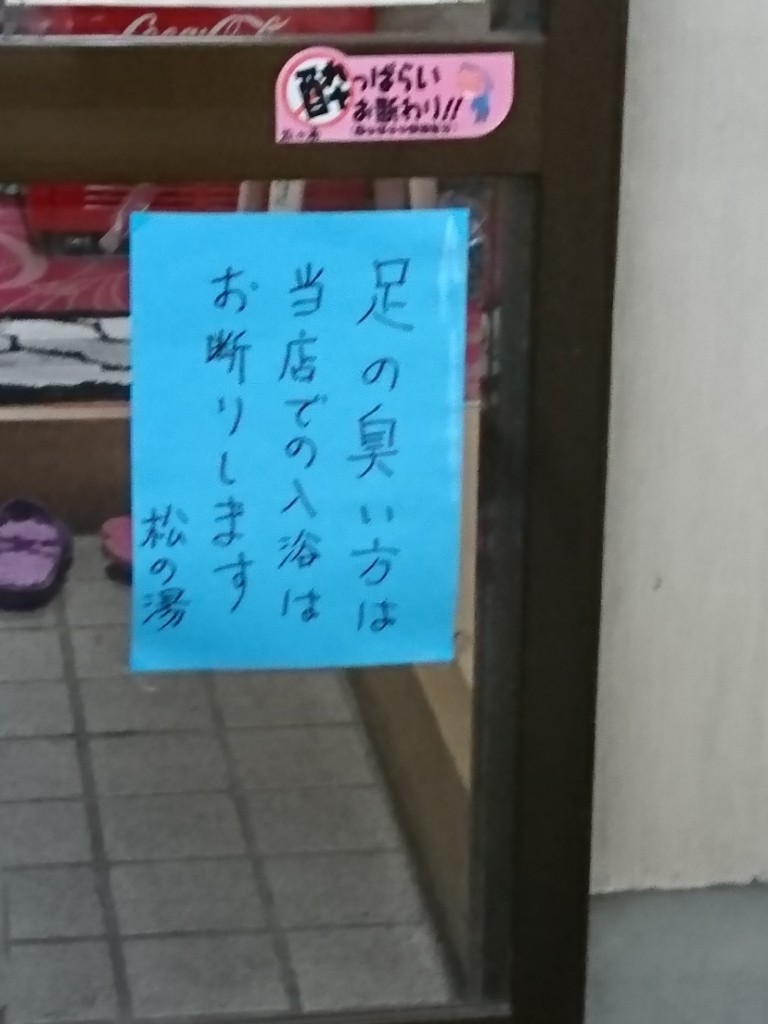 Coca-Cola
酔っぱらい
お断わり!!
足の臭い方は
当店での入浴は
お断りします
松の湯